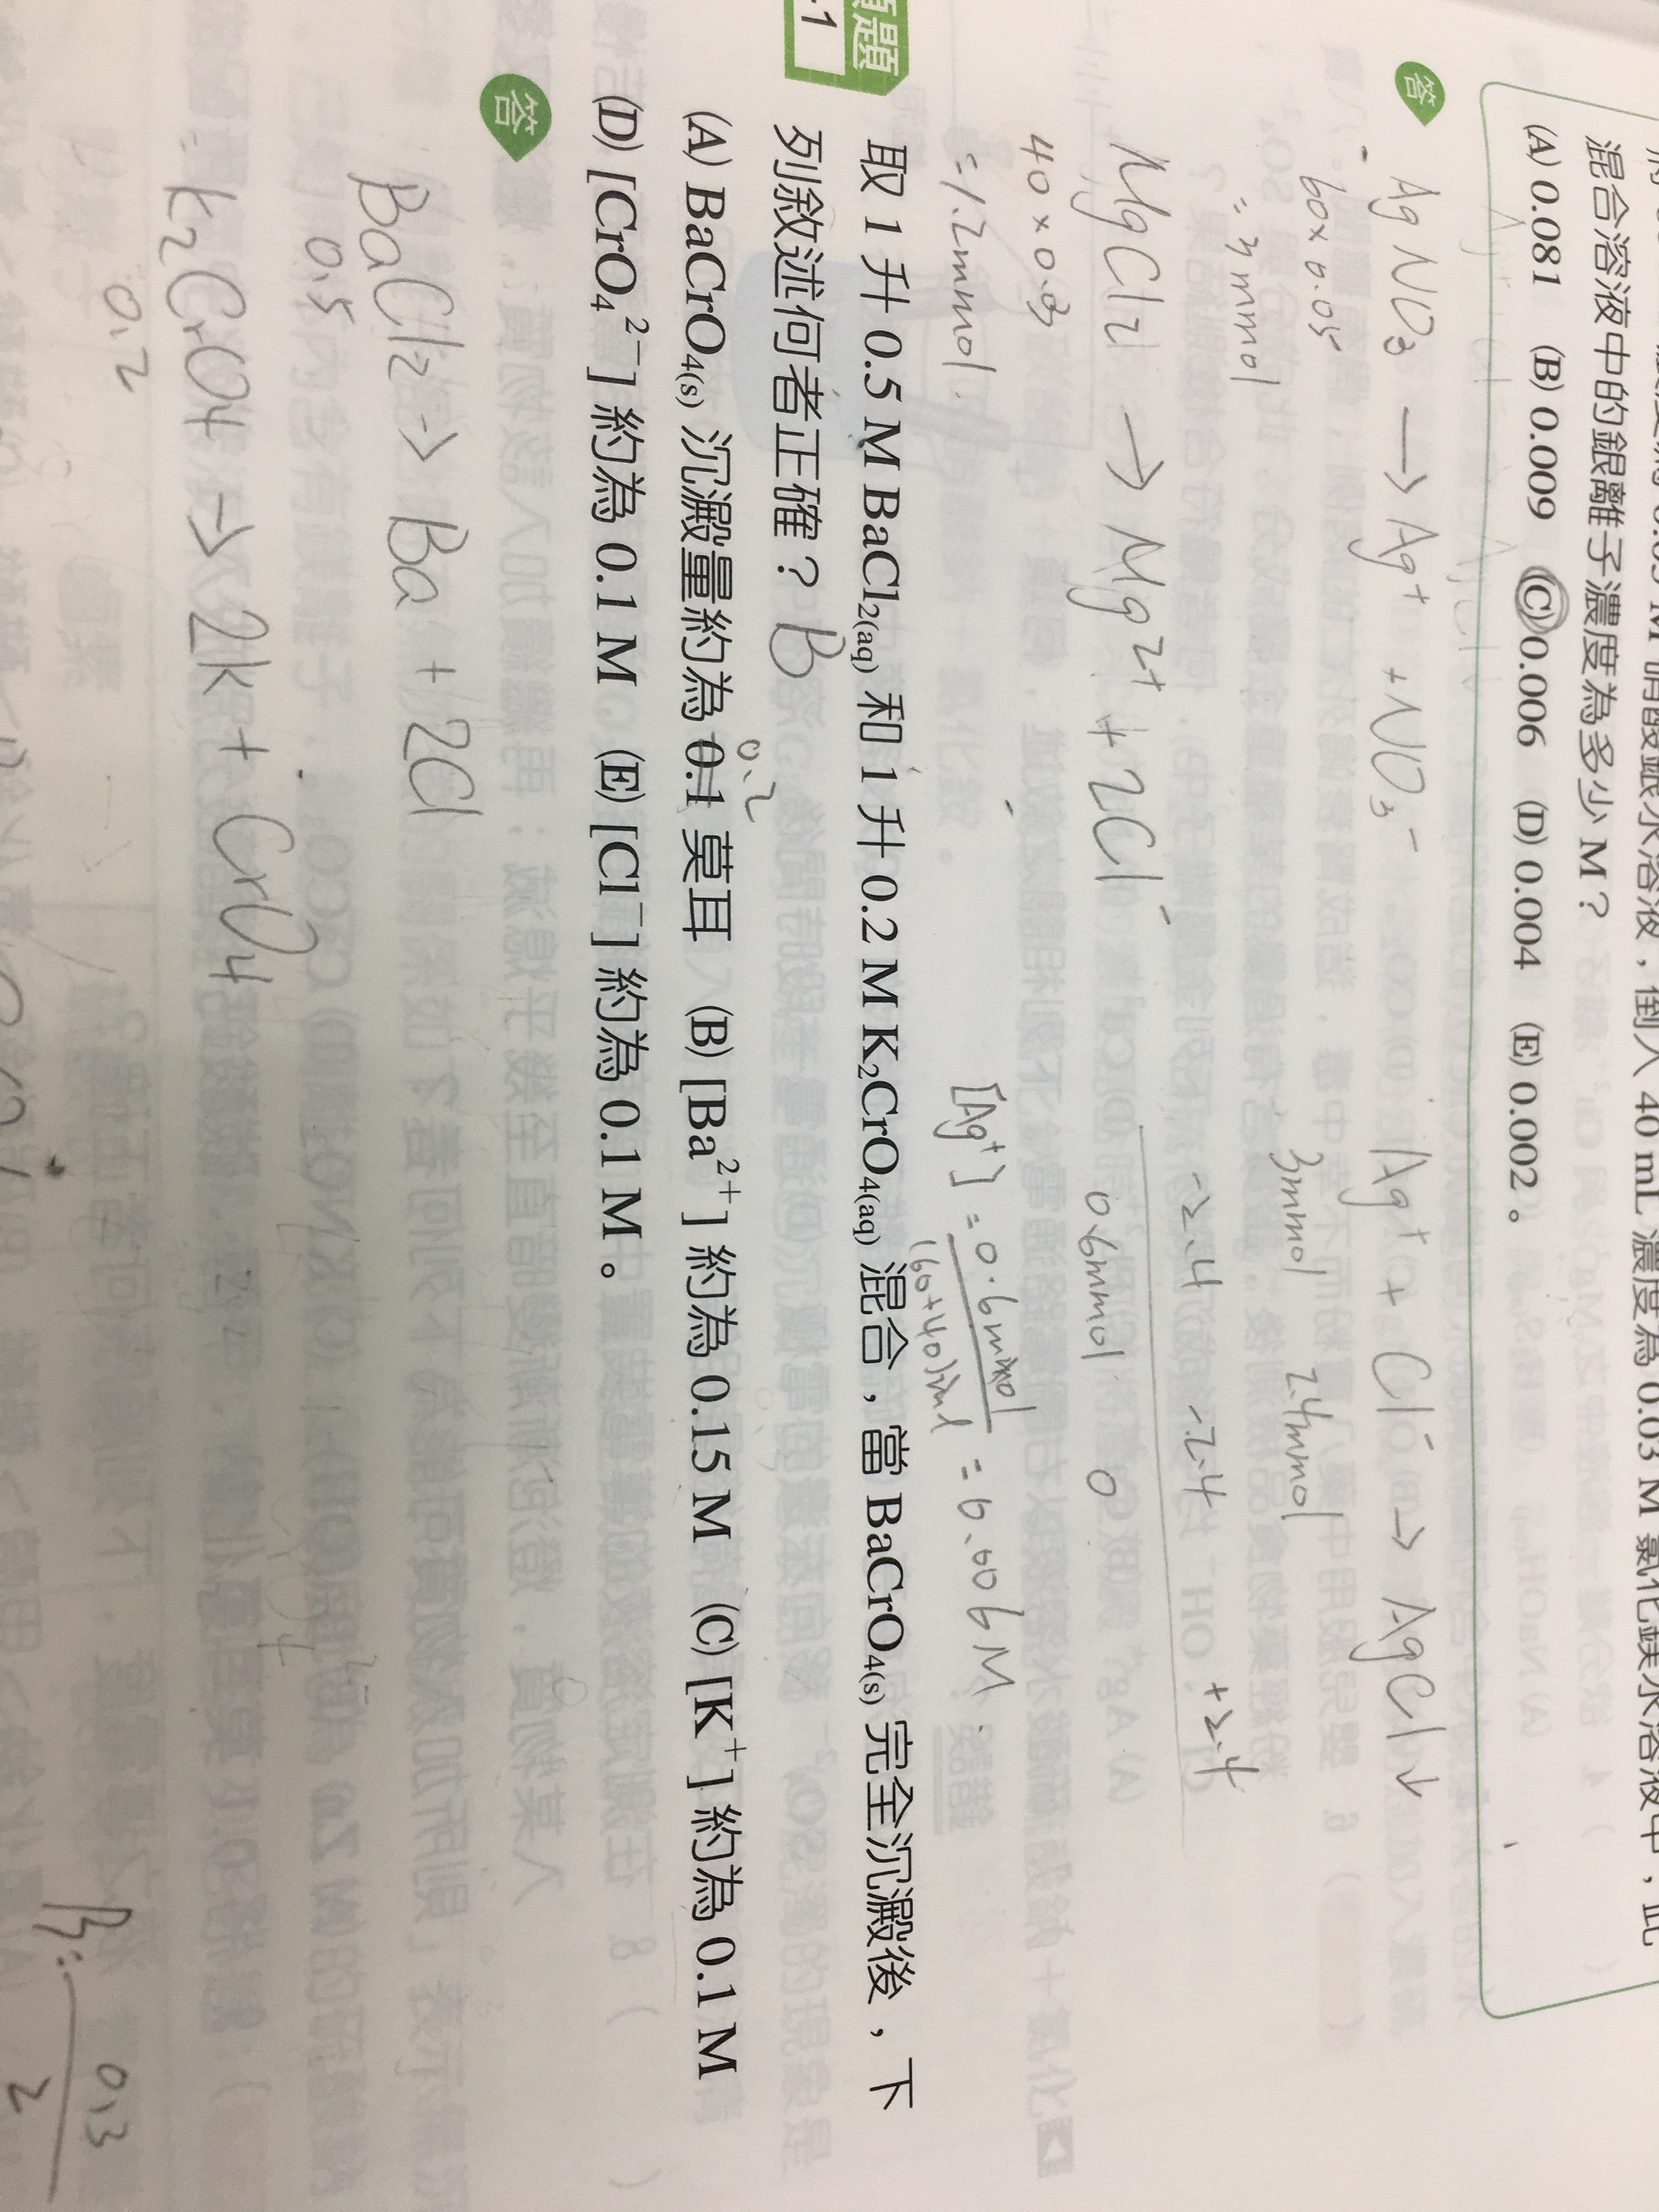 濃度為 0.05 M 硝酸銀水溶液，倒入 40 mL 濃度為 0.03 M 氯化鎂水溶液中，此
混合溶液中的銀離子濃度為多少 M？
(A) 0.081 (B) 0.009 (C) 0.006 (D) 0.004 (E) 0.002。
答
AgNO₃ → Ag⁺ + NO₃⁻
60×0.05
= 3mmol
MgCl₂ → Mg²⁺ + 2Cl⁻
40×0.03
= 1.2mmol.
Ag⁺ + Cl⁻ → AgCl↓
3mmol 2.4mmol
-2.4 -2.4 +2.4
0.6mmol 0
[Ag⁺] = 0.6mmol / (60+40)ml = 0.006M.
題
-1
取 1 升 0.5 M BaCl₂(aq) 和 1 升 0.2 M K₂CrO₄(aq) 混合，當 BaCrO₄(s) 完全沉澱後，下
列敘述何者正確？ B
0.2
(A) BaCrO₄(s) 沉澱量約為 0.1 莫耳 (B) [Ba²⁺] 約為 0.15 M (C) [K⁺] 約為 0.1 M
(D) [CrO₄²⁻] 約為 0.1 M (E) [Cl⁻] 約為 0.1 M。
答
BaCl₂ → Ba + 2Cl
0.5
K₂CrO₄ → 2K + CrO₄
0.2
B: 0.3 / 2